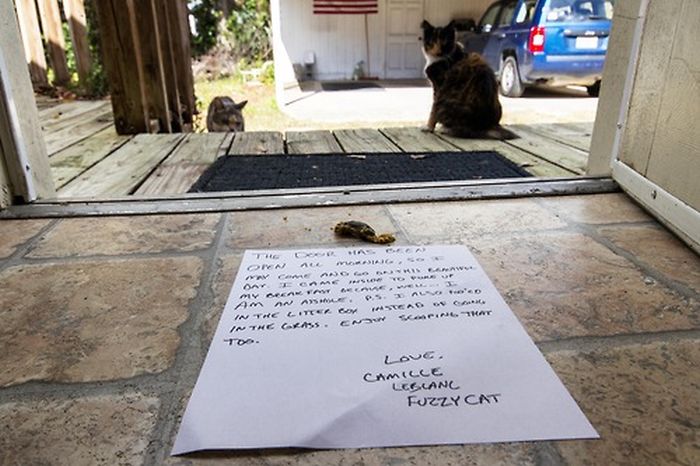 THE DOOR HAS BEEN
OPEN ALL MORNING, SO I
MAY COME AND GO ON THIS BEAUTIFUL
DAY. I CAME INSIDE TO PUKE UP
MY BREAKFAST BECAUSE, WELL... I
AM AN ASSHOLE. P.S. I ALSO POO'ED
IN THE LITTER BOX INSTEAD OF GOING
IN THE GRASS. ENJOY SCOOPING THAT
TOO.
LOVE,
CAMILLE
LEBLANC
FUZZYCAT